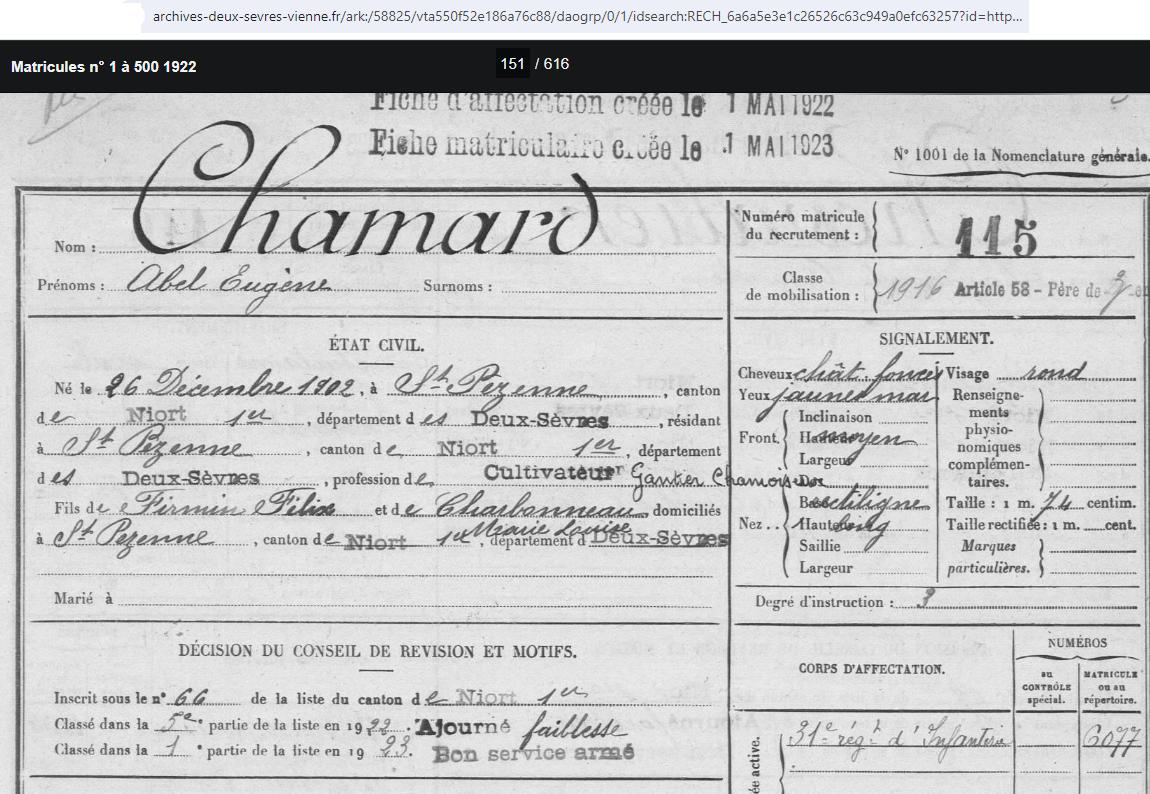 archives-deux-sevres-vienne.fr/ark:/58825/vta550f52e186a76c88/daogrp/0/1/idsearch:RECH_6a6a5e3e1c26526c63c949a0efc63257?id=http...
Matricules n° 1 à 500 1922
151 / 616
Fiche d'affectation créée le 1 MAI 1922
Fiche matriculaire créée le 1 MAI 1923
N° 1001 de la Nomenclature générale.
Nom : Chamard
Prénoms : Abel Eugène Surnoms :
Numéro matricule du recrutement : 115
Classe de mobilisation : 1916 Article 58 - Père de
ÉTAT CIVIL.
Né le 26 Décembre 1902, à St Pezenne, canton
de Niort 1er, département des Deux-Sèvres, résidant
à St Pezenne, canton de Niort 1er, département
des Deux-Sèvres, profession de Cultivateur Gantier Chamoiseur
Fils de Firmin Félix et de Charbonneau, domiciliés
Marie Louise
à St Pezenne, canton de Niort 1er, département d Deux-Sèvres
Marié à
SIGNALEMENT.
Cheveux chât. foncé Visage rond
Yeux jaunes mar
Renseignements physionomiques complémentaires.
Front. Inclinaison
Hauteur moyen
Largeur
Nez.. Dos
Base rectiligne
Hauteur
Saillie
Largeur
Taille : 1 m. 74 centim.
Taille rectifiée : 1 m. cent.
Marques particulières.
Degré d'instruction : 3
DÉCISION DU CONSEIL DE REVISION ET MOTIFS.
Inscrit sous le n° 66 de la liste du canton de Niort 1er
Classé dans la 5e partie de la liste en 1922. Ajourné faiblesse
Classé dans la 1e partie de la liste en 1923. Bon service armé
CORPS D'AFFECTATION.
NUMÉROS
au CONTRÔLE spécial.
MATRICULE ou au répertoire.
ée active.
31e régt d'Infanterie 6077